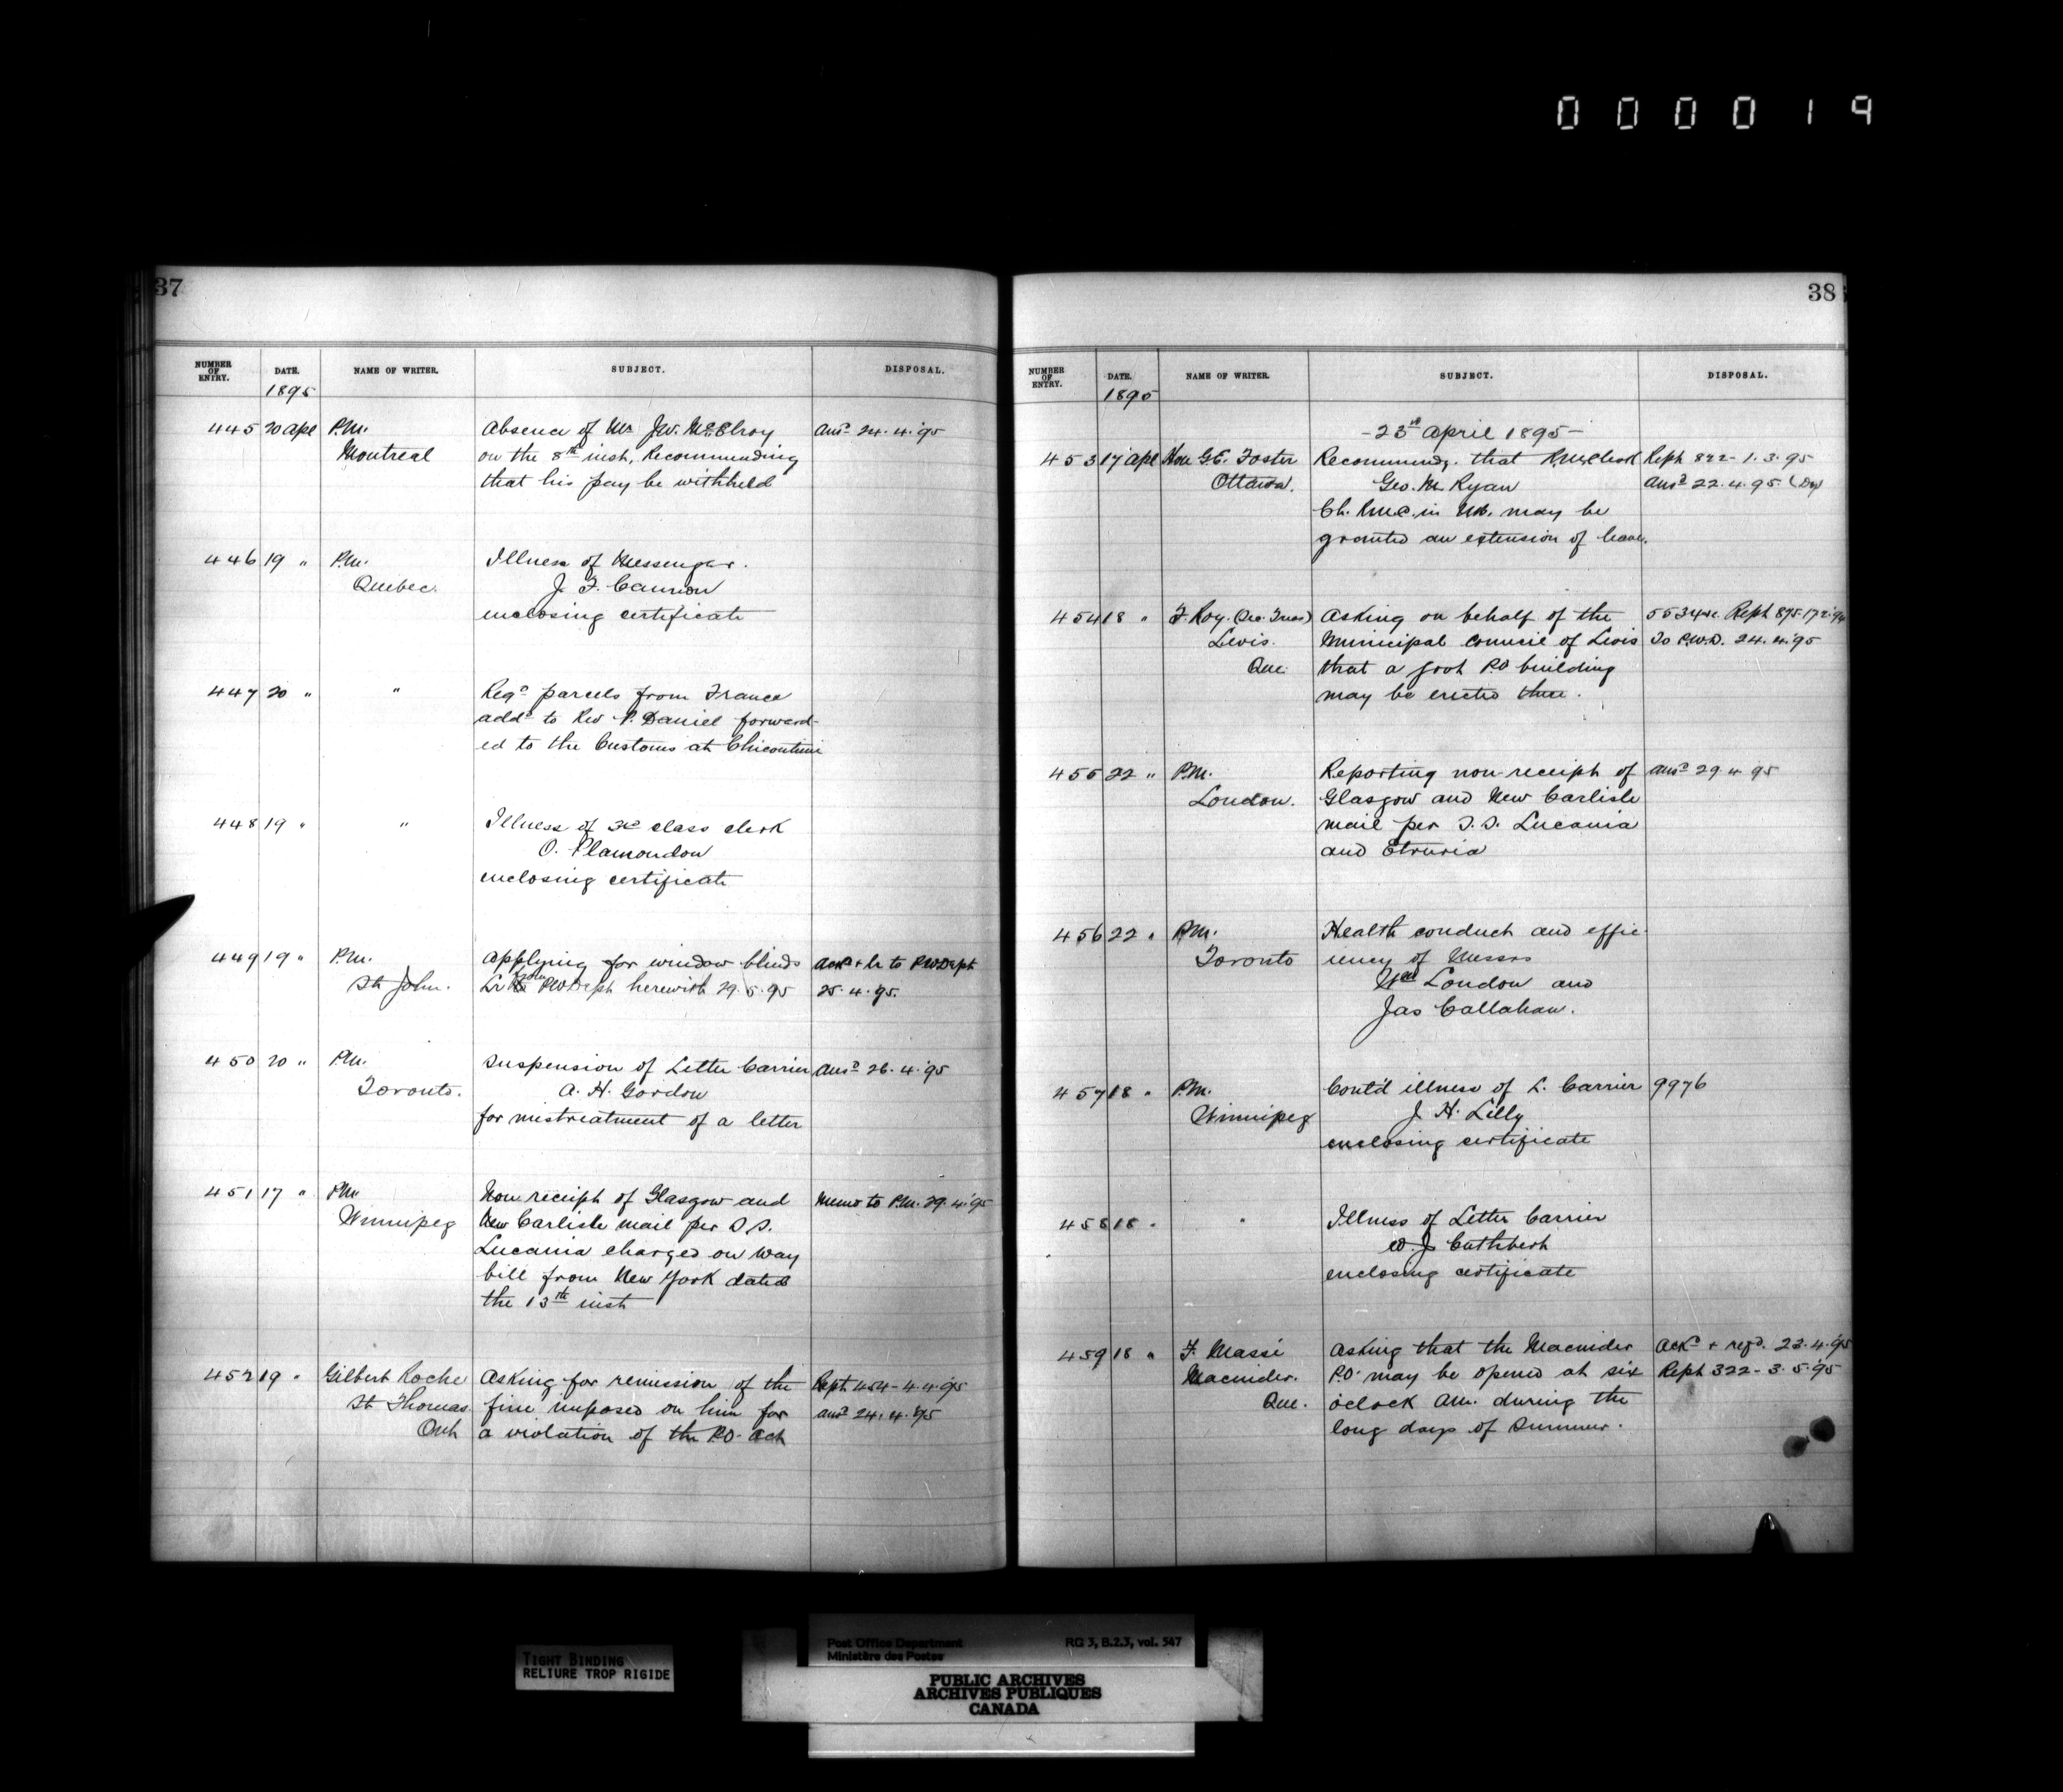 000019
37
NUMBER OF ENTRY. DATE. NAME OF WRITER. SUBJECT. DISPOSAL.
1895
445 20 Apl P.M. Absence of Mr J.W. McElroy Ansd 24.4.'95
Montreal on the 8th inst, Recommending
that his pay be withheld
446 19 " P.M. Illness of Messenger.
Quebec. J. F.
enclosing certificate
447 20 " " Regd parcels from France
addd to Rev P. Daniel forward-
ed to the Customs at Chicoutimi
448 19 " " Illness of 3rd class clerk
O. Plamondon
enclosing certificate
449 19 " P.M. Applying for window blinds Ackd + lr to P.W.Dept
St John. Lr from P.W.Dept herewith 29.5.95 25.4.'95.
450 20 " P.M. Suspension of Letter Carrier Ansd 26.4.'95
Toronto. A. H. Gordon
for mistreatment of a letter
451 17 " P.M. Non receipt of Glasgow and Memo to P.M. 29.4.'95
Winnipeg New Carlisle mail per S.S.
Lucania charged on way
bill from New York dated
the 13th inst
452 19 " Gilbert Roche Asking for remission of the Rept 454-4.4.'95
St Thomas fine imposed on him for ansd 24.4.'95
Ont a violation of the P.O. Act
38
NUMBER OF ENTRY. DATE. NAME OF WRITER. SUBJECT. DISPOSAL.
1895
- 23rd April 1895 -
453 17 Apl Hon G.E. Foster Recommendg. that R.M. Clerk Rept 822-1.3.95
Ottawa. Geo. M. Ryan Ansd 22.4.95
Ch. R.M.C. in N.B. may be
granted an extension of leave.
454 18 " F. Roy. (Sec. Treas) Asking on behalf of the Rept
Levis. Municipal Council of Levis To P.W.D. 24.4.'95
Que. that a govt P.O building
may be erected there.
455 22 " P.M. Reporting non-receipt of Ansd 29.4.95
London. Glasgow and New Carlisle
mail per S.S. Lucania
and Etruria
456 22 " P.M. Health conduct and effic-
Toronto iency of Messrs
Wm London and
Jas Callahan.
457 18 " P.M. Cont'd illness of L. Carrier 9976
Winnipeg J. H. Lilly
enclosing certificate
458 18 " " Illness of Letter Carrier
W. J. Cuthbert
enclosing certificate
459 18 " F. Massé Asking that the Macnider Ackd + refd. 23.4.'95
Macnider. P.O. may be opened at six Rept 322-3.5.'95
Que. o'clock a.m. during the
long days of Summer.
TIGHT BINDING
RELIURE TROP RIGIDE
Post Office Department RG 3, B.2.3, vol. 547
Ministère des Postes
PUBLIC ARCHIVES
ARCHIVES PUBLIQUES
CANADA